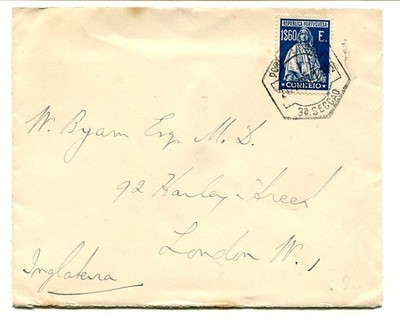 REPUBLICA PORTUGUESA
1$60 E.
CORREIO
3a. SECCAO
W. Byam Esq. M. D.
92 Harley Street
London W. 1
Inglaterra